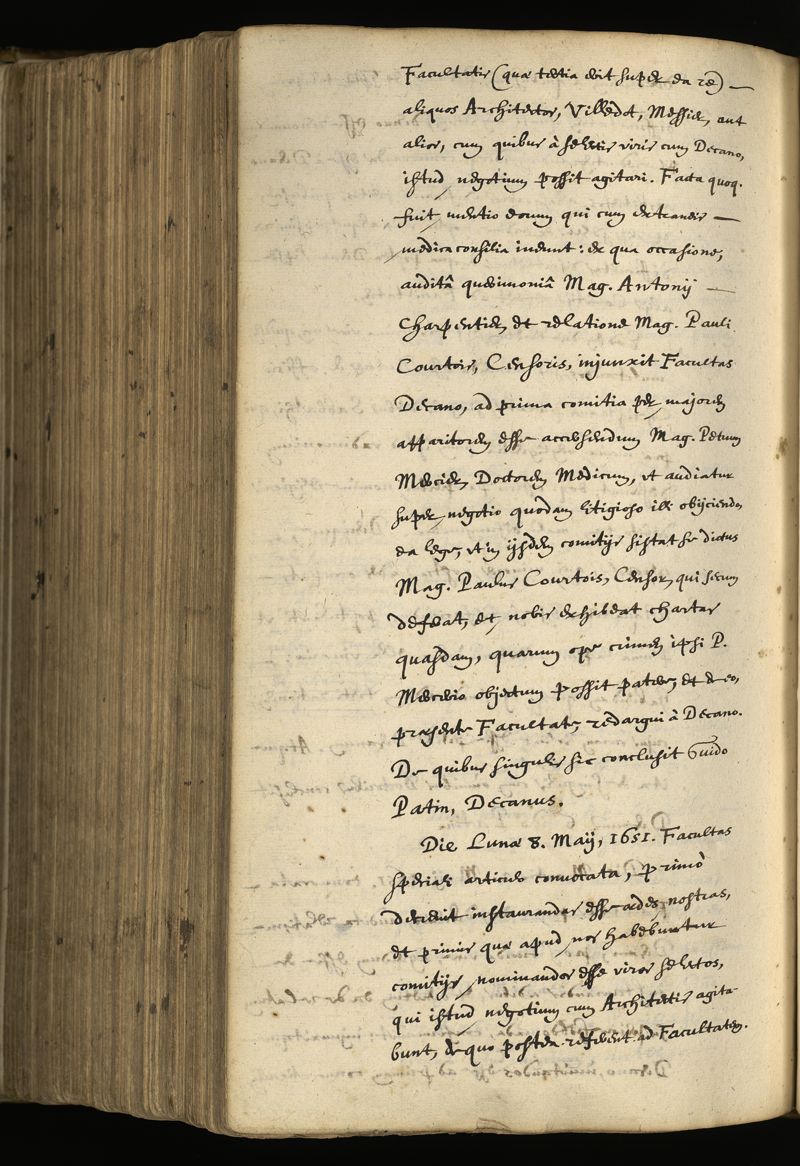 Facultatis (quæ tertia erit super ea re) —
aliquos Architectos, Villedot, Messier, aut
alios, cum quibus à selectis viris cum Decano,
istud negotium possit agitari. Facta quoq.
fuit mentio eorum qui cum extraneis —
medica consilia ineunt: ex qua occasione,
auditâ querimoniâ Mag. Antonij —
Charpentier, et relatione Mag. Pauli
Courtois, Censoris, injunxit Facultas
Decano, ad prima comitia per majorem
apparitorem esse accersendum Mag. Petrum
Mercier, Doctorem Medicum, ut audiatur
super negotio quodam litigioso illi obijciendo,
ea lege, ut in ijsdem comitijs sistat se dictus
Mag. Paulus Courtois, Censor, qui secum
deferat, et nobis exhibeat chartas
quasdam, quarum ope crimen ipsi P.
Mercerio objectum possit patere, et de eo,
præsente Facultate, redargui à Decano.
De quibus singulis sic conclusit Guido
Patin, Decanus.
Die Lunæ 8. Maij, 1651. Facultas
speciali articulo convocata, primò
decrevit instaurandas esse ædes nostras,
et primis quæ apud nos habebuntur
comitijs, nominandos esse viros selectos,
qui istud negotium cum Architectis agita-
bunt, de quo postea referent ad Facultatem.